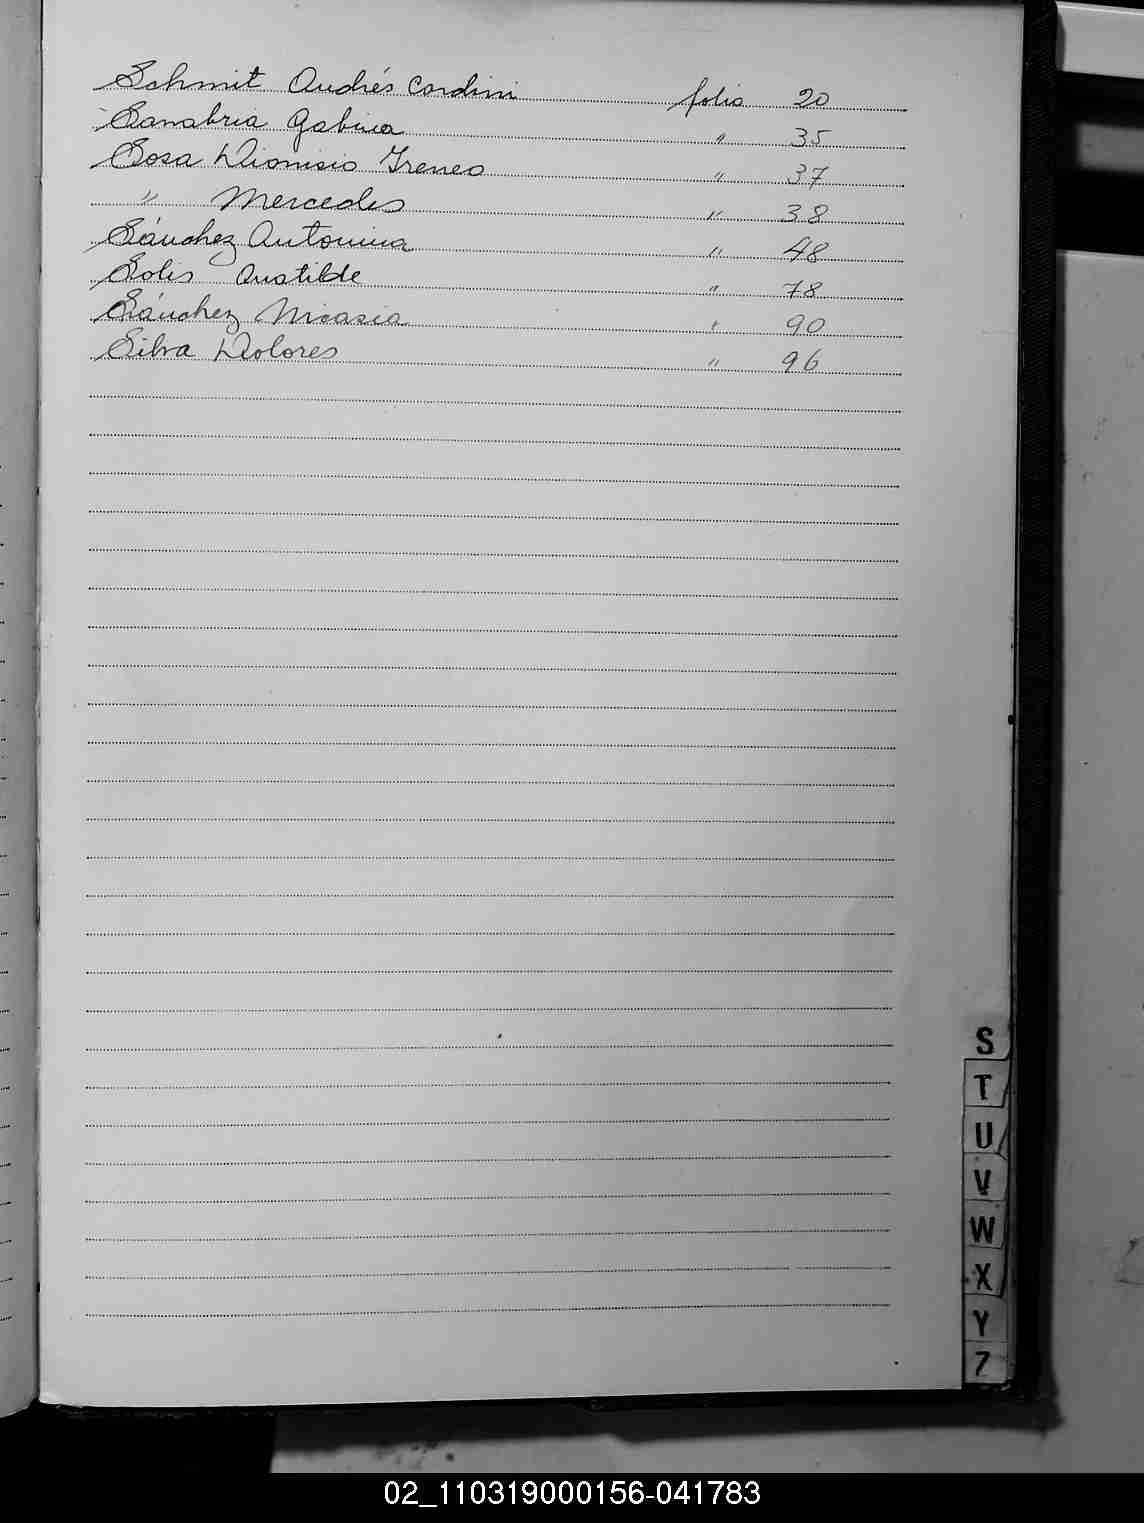 Schmit Andrés Cordini folio 20
Sanabria Gabina " 35
Sosa Dionisio Ireneo " 37
" Mercedes " 38
Sánchez Antonina " 48
Solis Anatilde " 78
Sánchez Nicasia " 90
Silva Dolores " 96
S
T
U
V
W
X
Y
Z
02_110319000156-041783